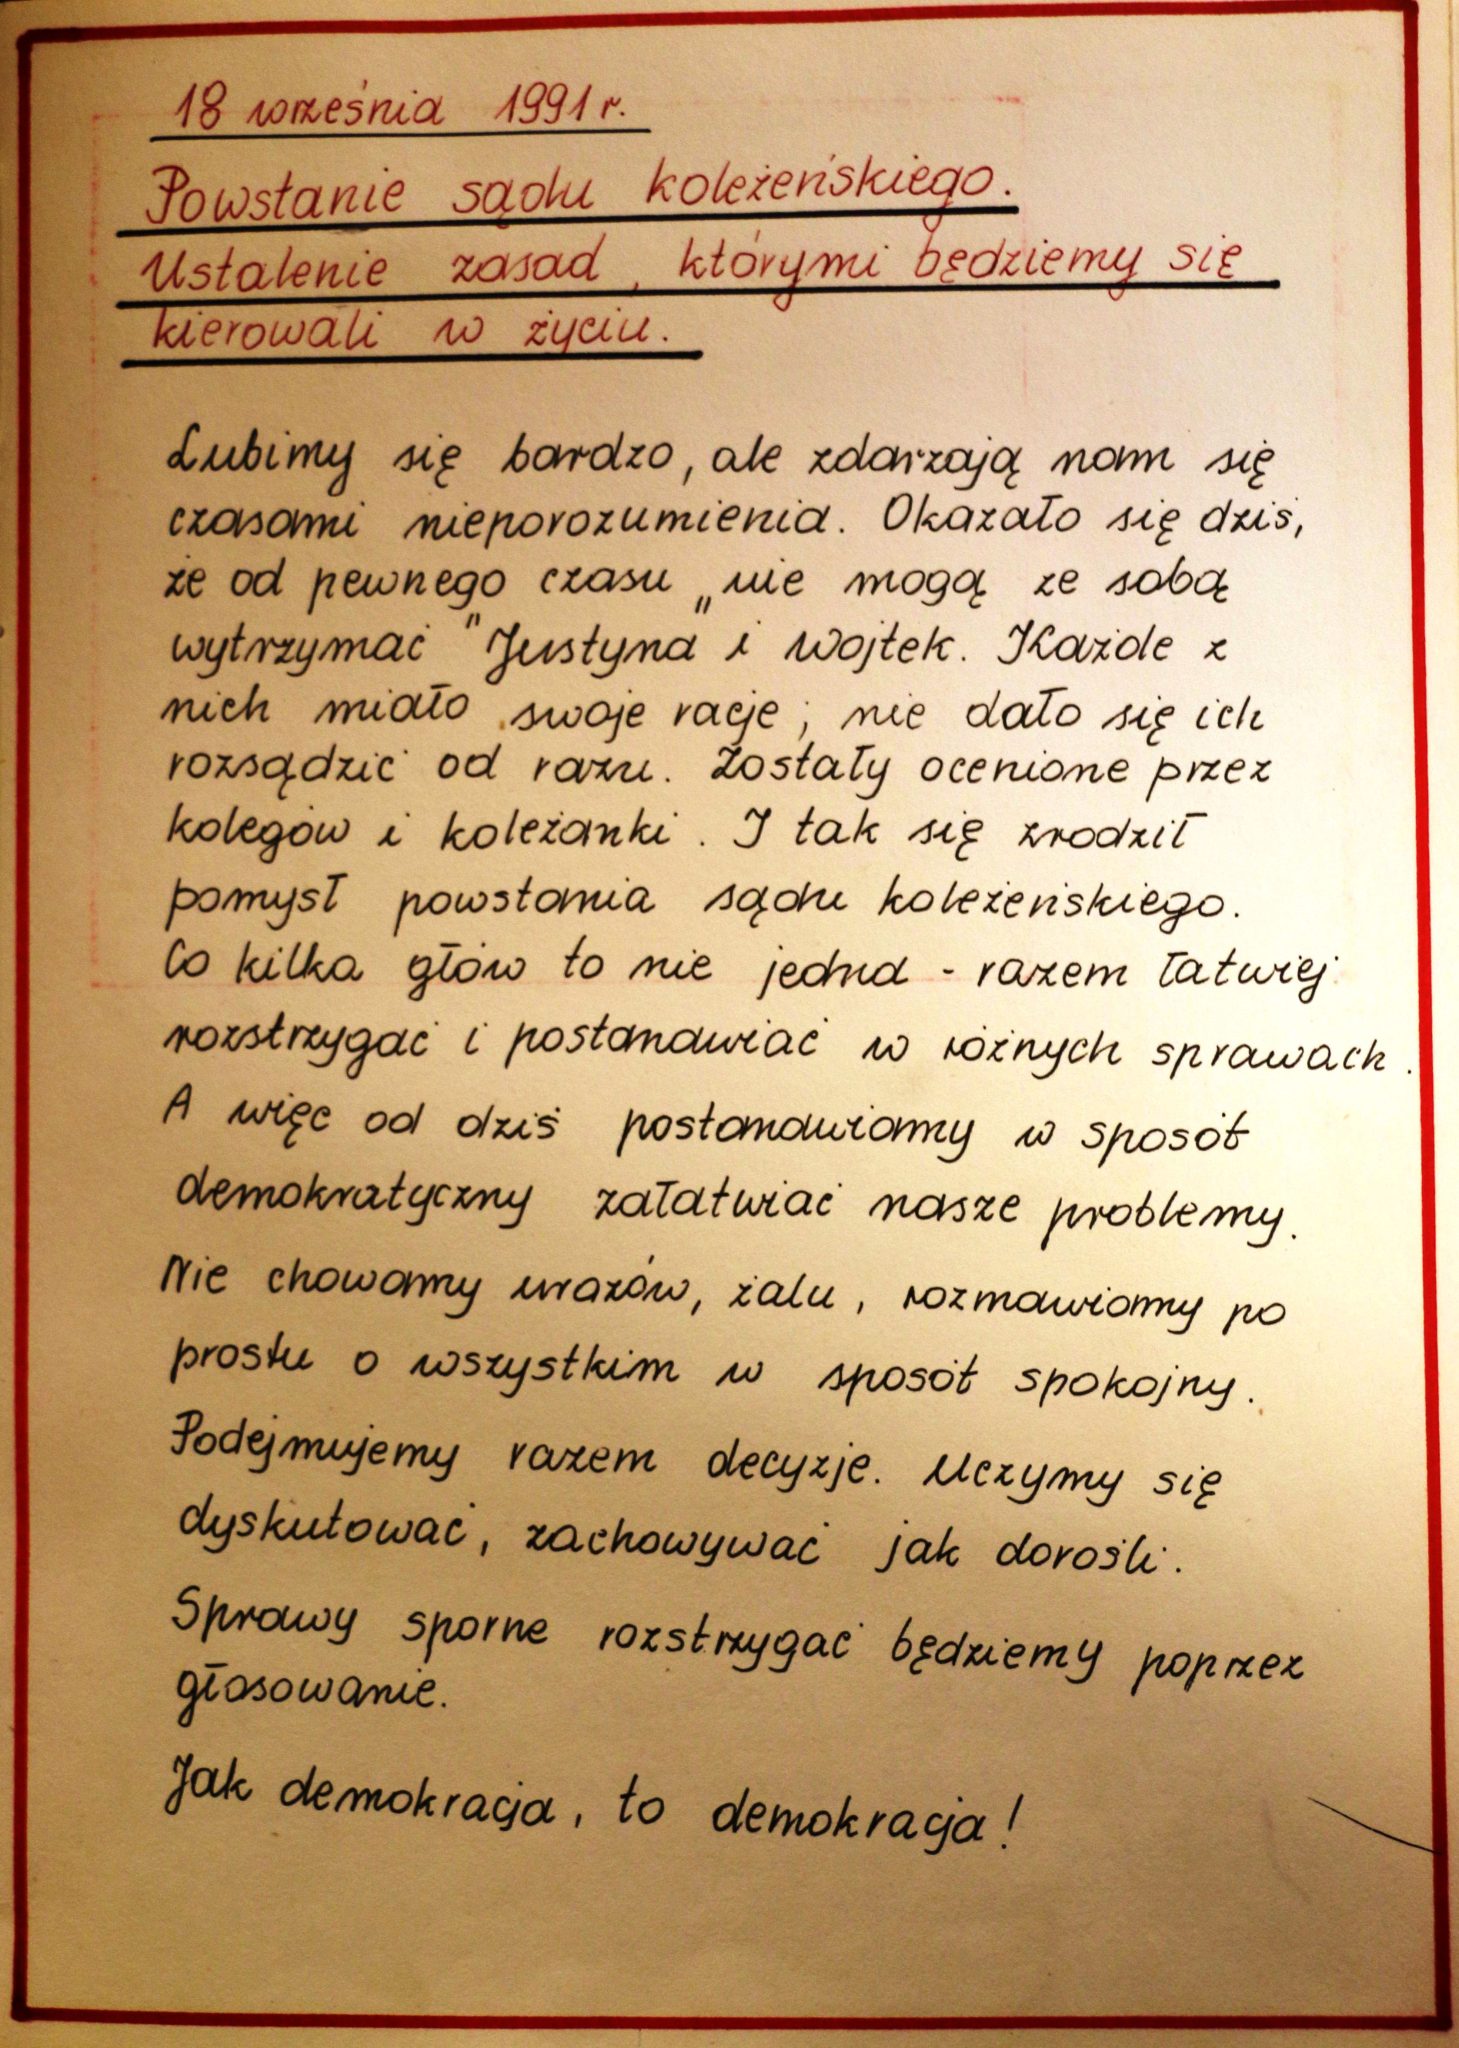 18 września 1991 r.
Powstanie sądu koleżeńskiego.
Ustalenie zasad, którymi będziemy się
kierowali w życiu.
Lubimy się bardzo, ale zdarzają nam się
czasami nieporozumienia. Okazało się dziś,
że od pewnego czasu „nie mogą ze sobą
wytrzymać" Justyna i Wojtek. Każde z
nich miało swoje racje, nie dało się ich
rozsądzić od razu. Zostały ocenione przez
kolegów i koleżanki. I tak się zrodził
pomysł powstania sądu koleżeńskiego.
Co kilka głów to nie jedna - razem łatwiej
rozstrzygać i postanawiać w różnych sprawach.
A więc od dziś postanawiamy w sposób
demokratyczny załatwiać nasze problemy.
Nie chowamy urazów, żalu, rozmawiamy po
prostu o wszystkim w sposób spokojny.
Podejmujemy razem decyzje. Uczymy się
dyskutować, zachowywać jak dorośli.
Sprawy sporne rozstrzygać będziemy poprzez
głosowanie.
Jak demokracja, to demokracja!